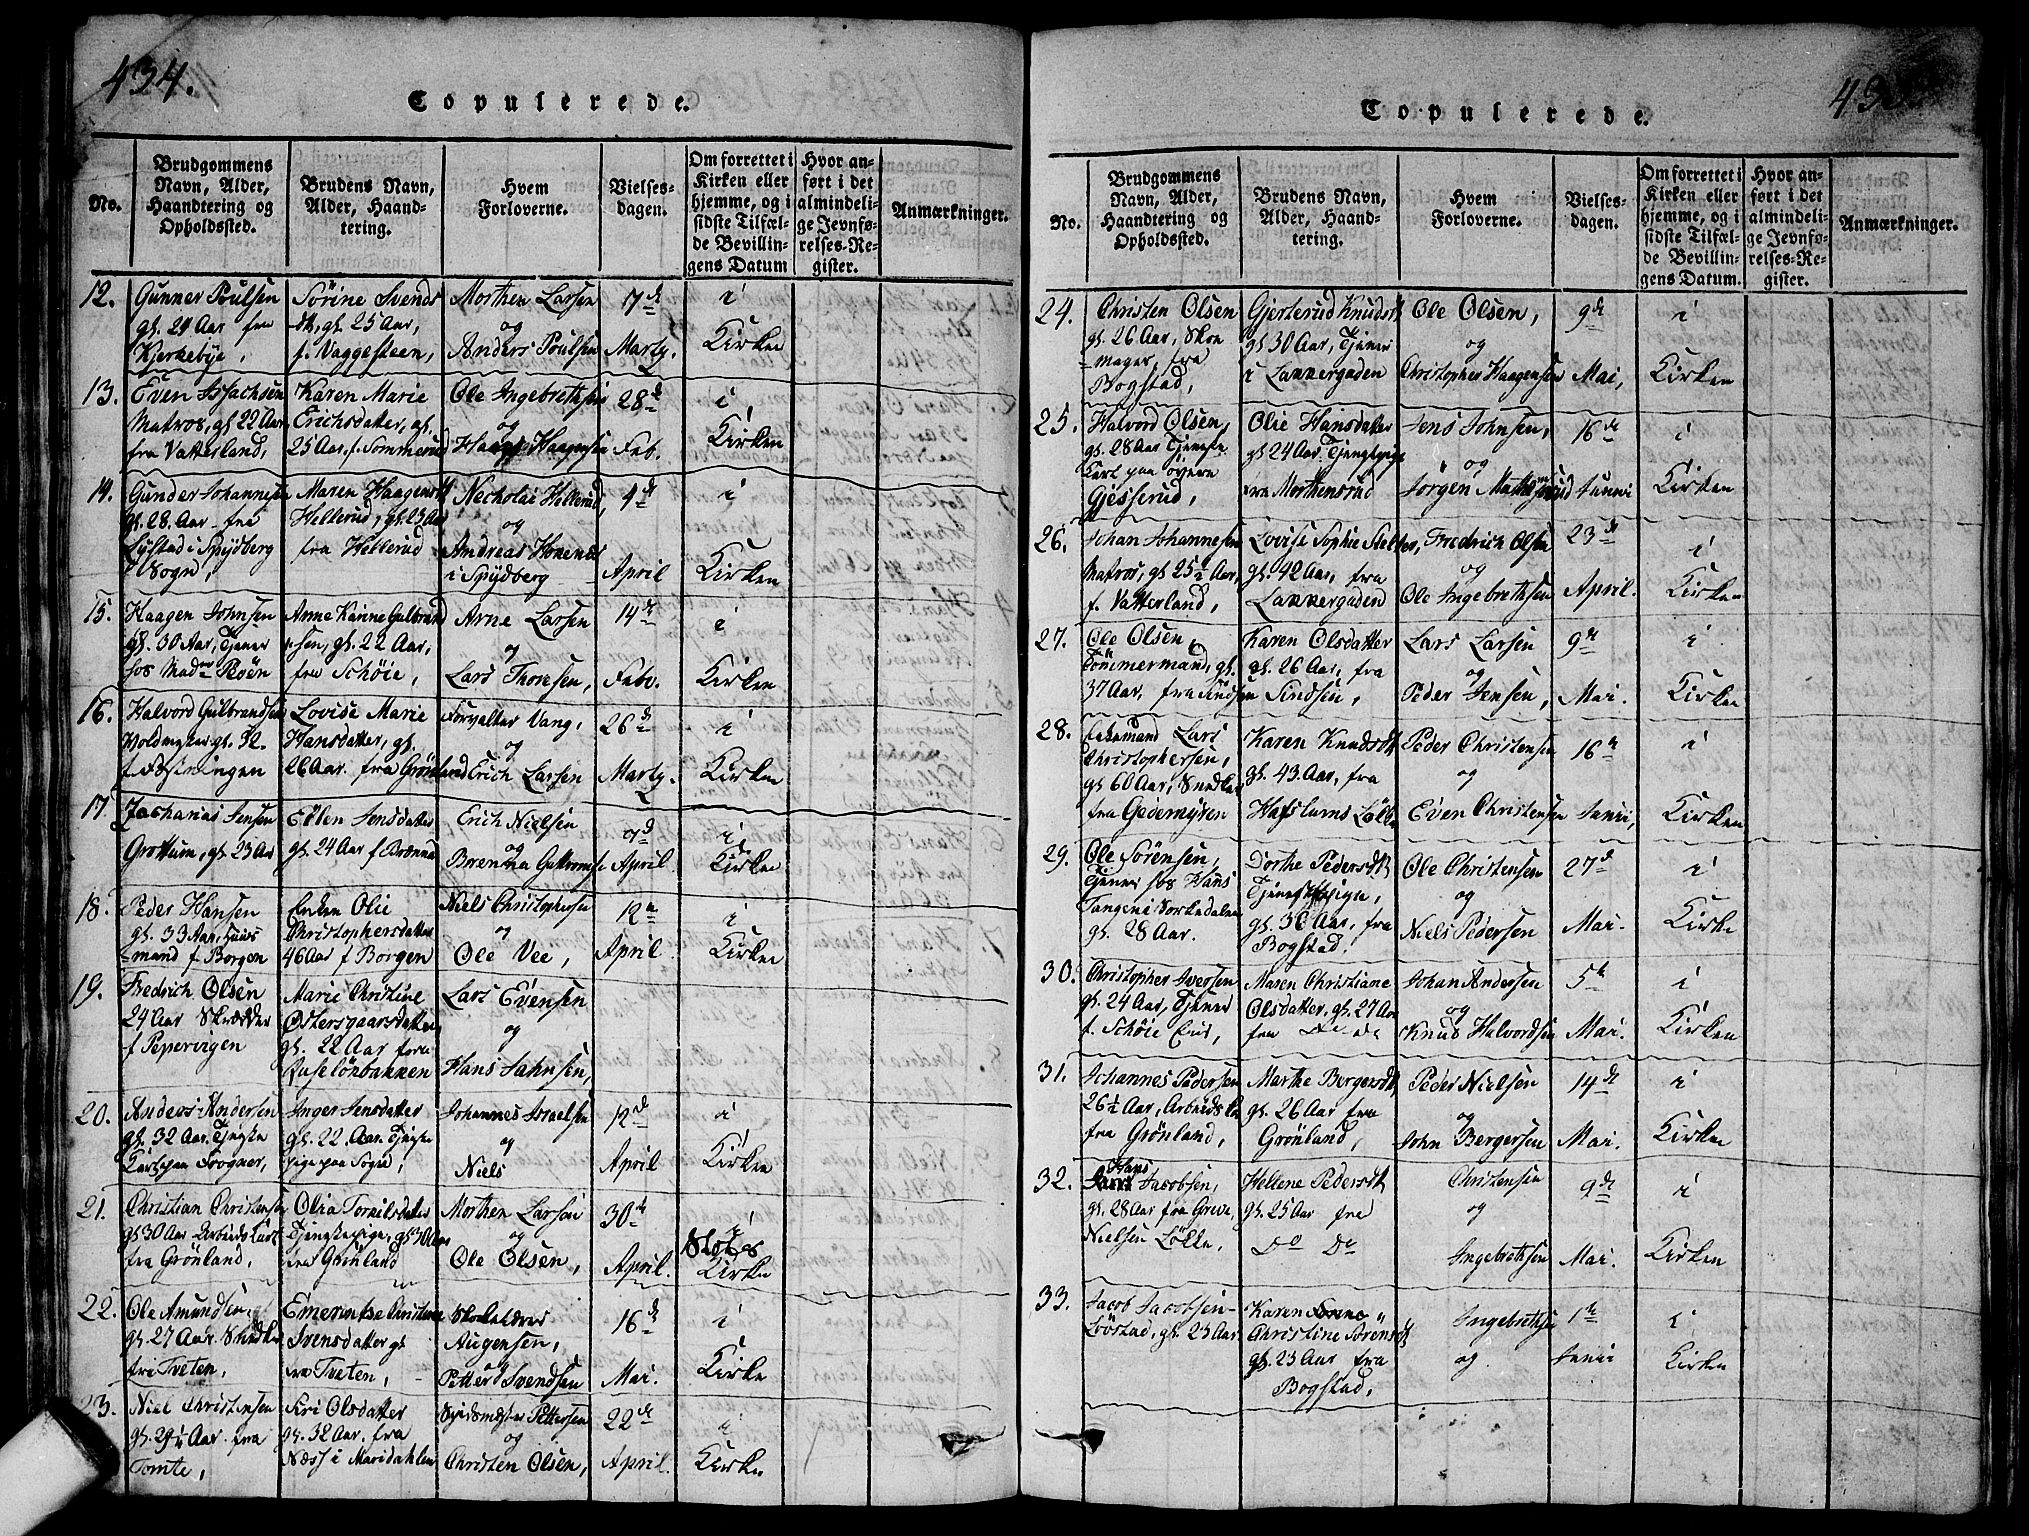 434.
Copulerede.
No.
Brudgommens
Navn, Alder,
Haandtering og
Opholdssted.
Brudens Navn,
Alder, Haand-
tering.
Hvem
Forloverne.
Vielses-
dagen.
Om forrettet i
Kirken eller
hjemme, og i
sidste Tilfæl-
de Bevillin-
gens Datum
Hvor an-
ført i det
almindeli-
ge Jevnfø-
relses-Re-
gister.
Anmærkninger.
12.
Gunner Poulsen
gl. 21 Aar fra
Kjerkebye,
Sörine Svends
dtr, gl. 25 Aar,
f. Vaggesteen,
Morthen Larsen
og
Anders Poulsen
7de
Marty.
i
Kirken
13.
Even Isachsen
Matros, gl 22 Aar
fra Vatterland,
Karen Marie
Erichsdatter, gl.
25 Aar. f. Sommerud
Ole Ingebrethsen
og
Haagen Haagensen
28de
Feb.
i
Kirken
14.
Gunder Johannesen
gl. 28. Aar fra
Lystad i Spydberg
Sogn,
Maren Haagensdtr
Hellerud, gl. 23 Aar
fra Hellerud
Necholai Hellerud,
og
Andreas Honenes
i Spydberg
4de
April
i
Kirken
15.
Haagen Johnsen
gl. 30 Aar, Tjener
hos Madme Peöen
Anne Karine Gulbrand
sen, gl. 22 Aar,
fra Schöie,
Arne Larsen
og
Lars Thoresen,
14de
Febr.
i
Kirken
16.
Halvord Gulbrandsen
Voldmester gl. 32
f. Fæstningen
Lovise Marie
Hansdatter, gl.
26 Aar. fra Grönland
Forvalter Vang,
og
Erich Larsen
26de
Marty.
i
Kirken
17.
Zacharias Jensen
Grottum, gl. 23 Aar
Ellen Jensdatter
gl. 24 Aar f Brænna
Erich Nielsen
og
7d
April
i
Kirken
18.
Peder Hansen
gl. 33 Aar, Huus
mand f Borgen
Enken Olie
Christophersdatter
46 Aar f Borgen
Niels Christophersen
og
Ole Vee,
12te
April
i
Kirken
19.
Fredrich Olsen
24 Aar Skrædder
f Pepervigen
Marie Christine
Østersgaardsdatter
gl. 22 Aar fra
Auselönbakken
Lars Evensen
og
Hans Jahnsen,
20.
Anders Andersen
gl. 32 Aar. Tjenste
Karl paa Frogner,
Inger Jensdatter
gl. 22. Aar. Tjenste
pige paa Sogn,
Johannes Israelsen
og
Niels
12de
April
i
Kirken
21.
Christian Christensen
gl 30 Aar Arbeids Karl
fra Grönland,
Olia Tornilsdatter
Tjenstepige, gl 30 Aar
fra Grönland
Morthen Larsen
og
Ole Olsen,
30te
April.
i
Slots
Kirke
22.
Ole Amundsen,
gl. 27 Aar. Snedker
fra Tveten,
Emerentse Christiane
Svensdatter gl
fra Tveten,
Skolelærer
Augensen,
og
Petter Svendsen
16de
Mai.
i
Kirken
23.
Niel Christensen
gl. 29½ Aar. fra
Tomte,
Siri Olsdatter
gl. 32 Aar. fra
Næss i Maridahlen
Spidsmester Pettersen
og
Christen Olsen,
22de
April.
i
Kirken
Copulerede.
No.
Brudgommens
Navn, Alder,
Haandtering og
Opholdssted.
Brudens Navn,
Alder, Haand-
tering.
Hvem
Forloverne.
Vielses-
dagen.
Om forrettet i
Kirken eller
hjemme, og i
sidste Tilfæl-
de Bevillin-
gens Datum.
Hvor an-
ført i det
almindeli-
ge Jevnfø-
relses-Re-
gister.
Anmærkninger.
24.
Christen Olsen
gl. 26 Aar, Skoe
mager, fra
Bogstad,
Gjerterud Knudsdtr
gl 30 Aar, Tjener
i Lakkergaden
Ole Olsen,
og
Christopher Haagensen
9de
Mai,
i
Kirken
25.
Halvord Olsen,
gl. 28 Aar Tjenste
Karl paa övere
Gjesserud,
Olie Hansdatter
gl 24 Aar. Tjenstpige
fra Morthensrud
Jens Johnsen,
og
Jörgen Mortensrud
16de
Junii
i
Kirken
26.
Johan Johannesen
Matros, gl 25½ Aar,
f. Vatterland,
Lovise Sophie
gl. 42 Aar, fra
Lakkergaden
Fredrich Olsen
og
Ole Ingebrethsen
23de
April.
i
Kirken
27.
Ole Olsen,
Tömmermand, gl.
37 Aar, fra Sindsen
Karen Olsdatter
gl. 26 Aar, fra
Sindsen,
Lars Larsen
og
Peder Jensen,
9de
Mai.
i
Kirken
28.
Enkemand Lars
Christophersen,
gl 60 Aar, Snedker
fra Gedemyren
Karen Knudsdtr
gl. 43. Aar, fra
Hafslunds Lölke
Peder Christensen
og
Even Christensen
16de
Junii,
i
Kirken
29.
Ole Sörensen,
Tjener hos Hans
Tangen i Sorkedalen
gl. 28 Aar.
Dorthe Pedersdtr
Tjenestepige,
gl. 30 Aar, fra
Bogstad,
Ole Christensen
og
Niels Pedersen
27de
Mai.
i
Kirke
30.
Christopher Iversen
gl. 24 Aar, Tjener
f. Schöie Eier,
Maren Christiane
Olsdatter, gl. 27 Aar
fra Do do
Johan Andersen
og
Knud Halvordsen
5te
Mai.
i
Kirken
31.
Johannes Pedersen
26½ Aar, Arbeids Karl
fra Grönland,
Marthe Bergersdtr
gl. 26 Aar fra
Grönland,
Peder Nielsen
og
John Bergersen
14de
Mai.
i
Kirken
32.
Hans
Jacobsen,
gl. 28 Aar fra Greve,
Nielsen Lölke,
Hellene Pedersdtr
gl. 25 Aar fra
Do Do
Christensen
og
Ingebrethsen
9de
Mai.
i
Kirken
33.
Jacob Jacobsen
Löstad, gl. 23 Aar.
Karen
Christine Sörensdtr
gl. 23 Aar fra
Bogstad,
Ingebrethsen
og
1te
Junii
i
Kirken